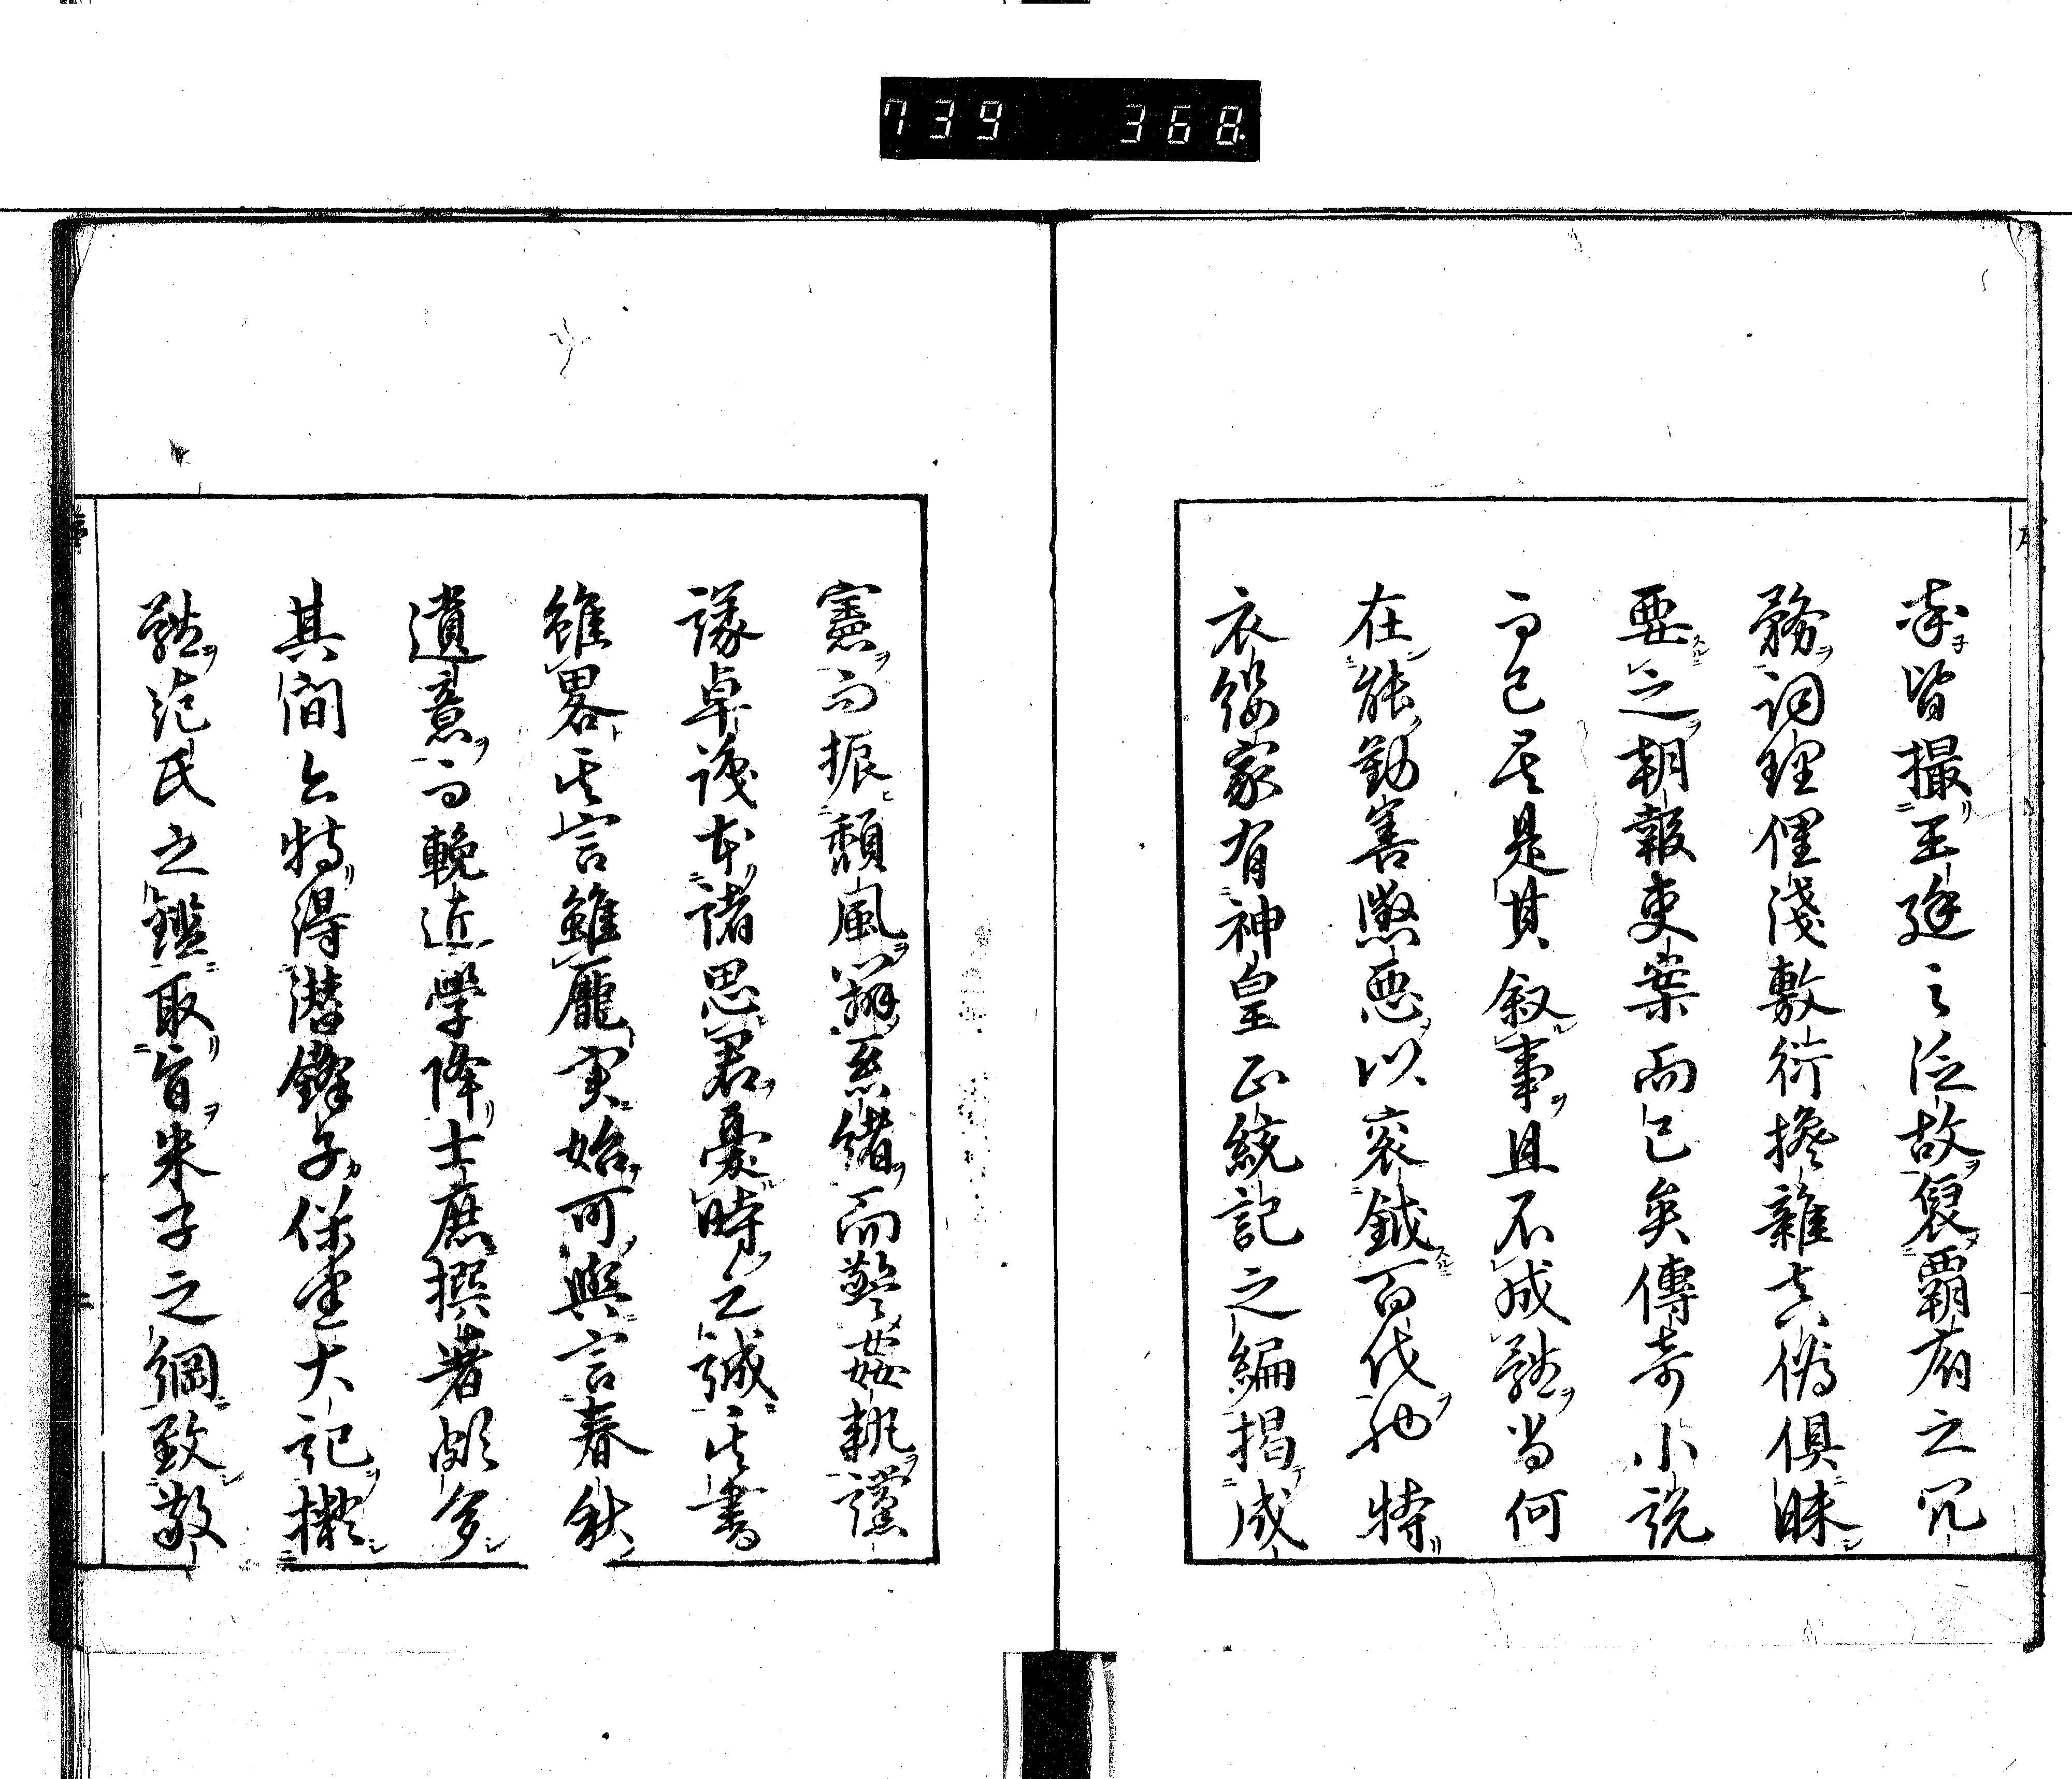 739 368
率皆撮王廷之泛故裒覇府之冗
務詞理俚淺敷衍攙雜真偽俱昧
要之朝報吏案而已矣傳奇小説
而已矣是其叙事且不成體当何
在能勧善懲惡以衮鉞百代也特
衣纓家有神皇正統記之編揭成
憲而振頽風辨系緒而警姦執讜
議卓識本諸思君憂時之誠其書
雖畧其言雖厖実始可與言春秋
遺意而輓近學降士庶撰著頗多
其間亦特得潜鋒子保建大記擬
體范氏之鑑取旨朱子之綱致敬